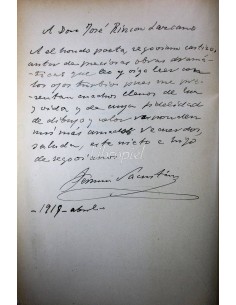 A Don José Rincon Lazcano
Al hondo poeta, segoviano castizo,
autor de preciosas obras dramá-
ticas que leo y oigo leer con
los ojos turbios pues me pre-
sentan cuadros llenos de luz
y vida y de cuya fidelidad
de dibujo y valor responden
mis más amados recuerdos,
saluda, este nieto e hijo
de segovianos.
- 1919 - abril -